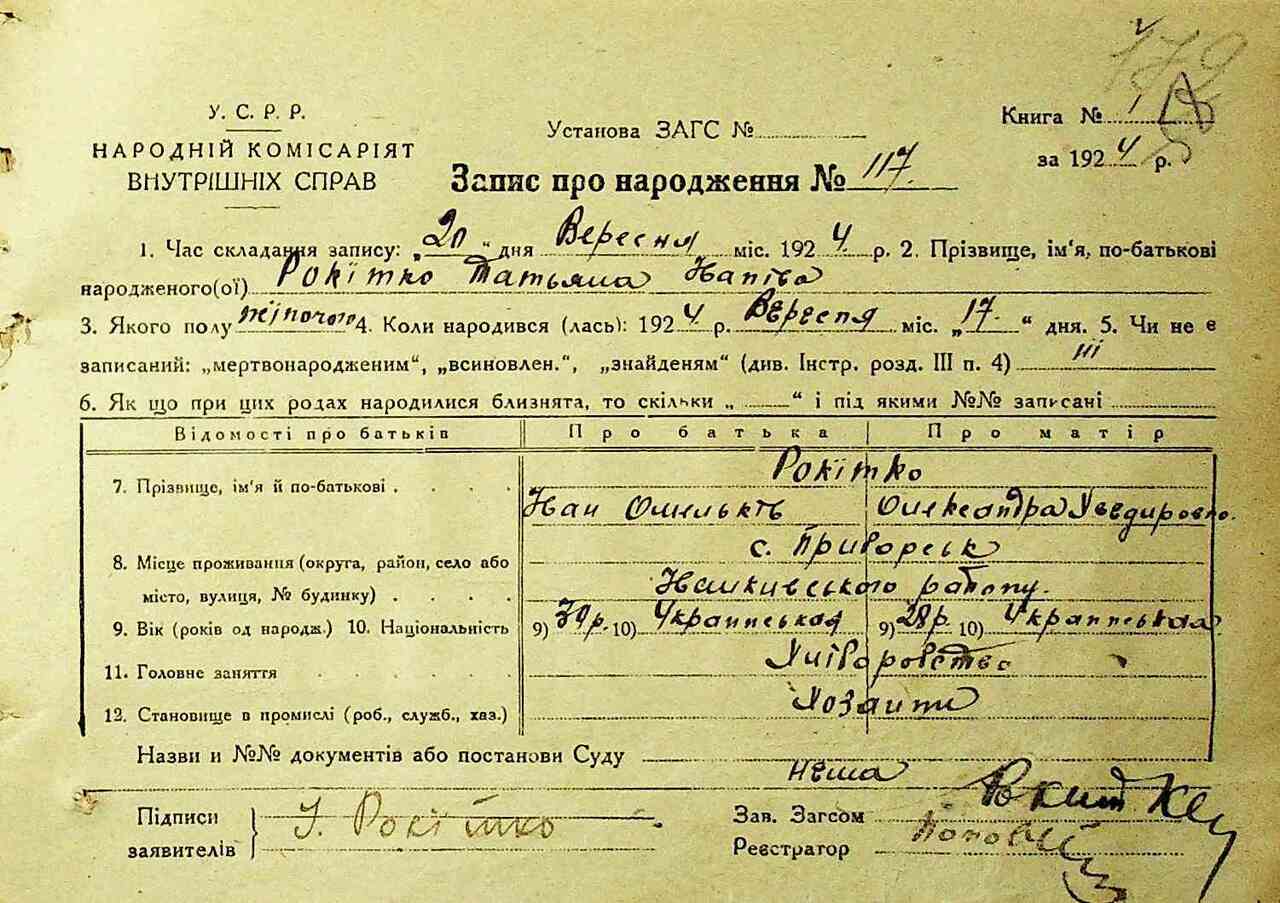 179
У. С. Р. Р.
НАРОДНІЙ КОМІСАРІЯТ
ВНУТРІШНІХ СПРАВ
Установа ЗАГС №
Книга № 1
за 1924 р.
Запис про народження № 117.
1. Час складання запису: „20“ дня Вересня міс. 1924 р. 2. Прізвище, ім'я, по-батькові
народженого(ої) Рокітко Татьяна
3. Якого полу жіночого 4. Коли народився (лась): 1924 р. Вересня міс. „17.“ дня. 5. Чи не є
записаний: „мертвонародженим“, „всиновлен.“, „знайденям“ (див. Інстр. розд. III п. 4)
6. Як що при цих родах народилися близнята, то скільки „ “ і під якими №№ записані
Відомості про батьків Про батька Про матір
7. Прізвище, ім'я й по-батькові . . . . Рокітко
Іван Олександра
8. Місце проживання (округа, район, село або с. Приборськ
місто, вулиця, № будинку) . . . . району.
9. Вік (років од народж.) 10. Національність 9) 30р. 10) Украінськая 9) 28р. 10) Украінськая
11. Головне заняття . . . . . Хліборобство
12. Становище в промислі (роб., служб., хаз.)
Назви и №№ документів або постанови Суду
нема
Підписи
заявителів
І. Рокітко
Зав. Загсом
Реєстратор